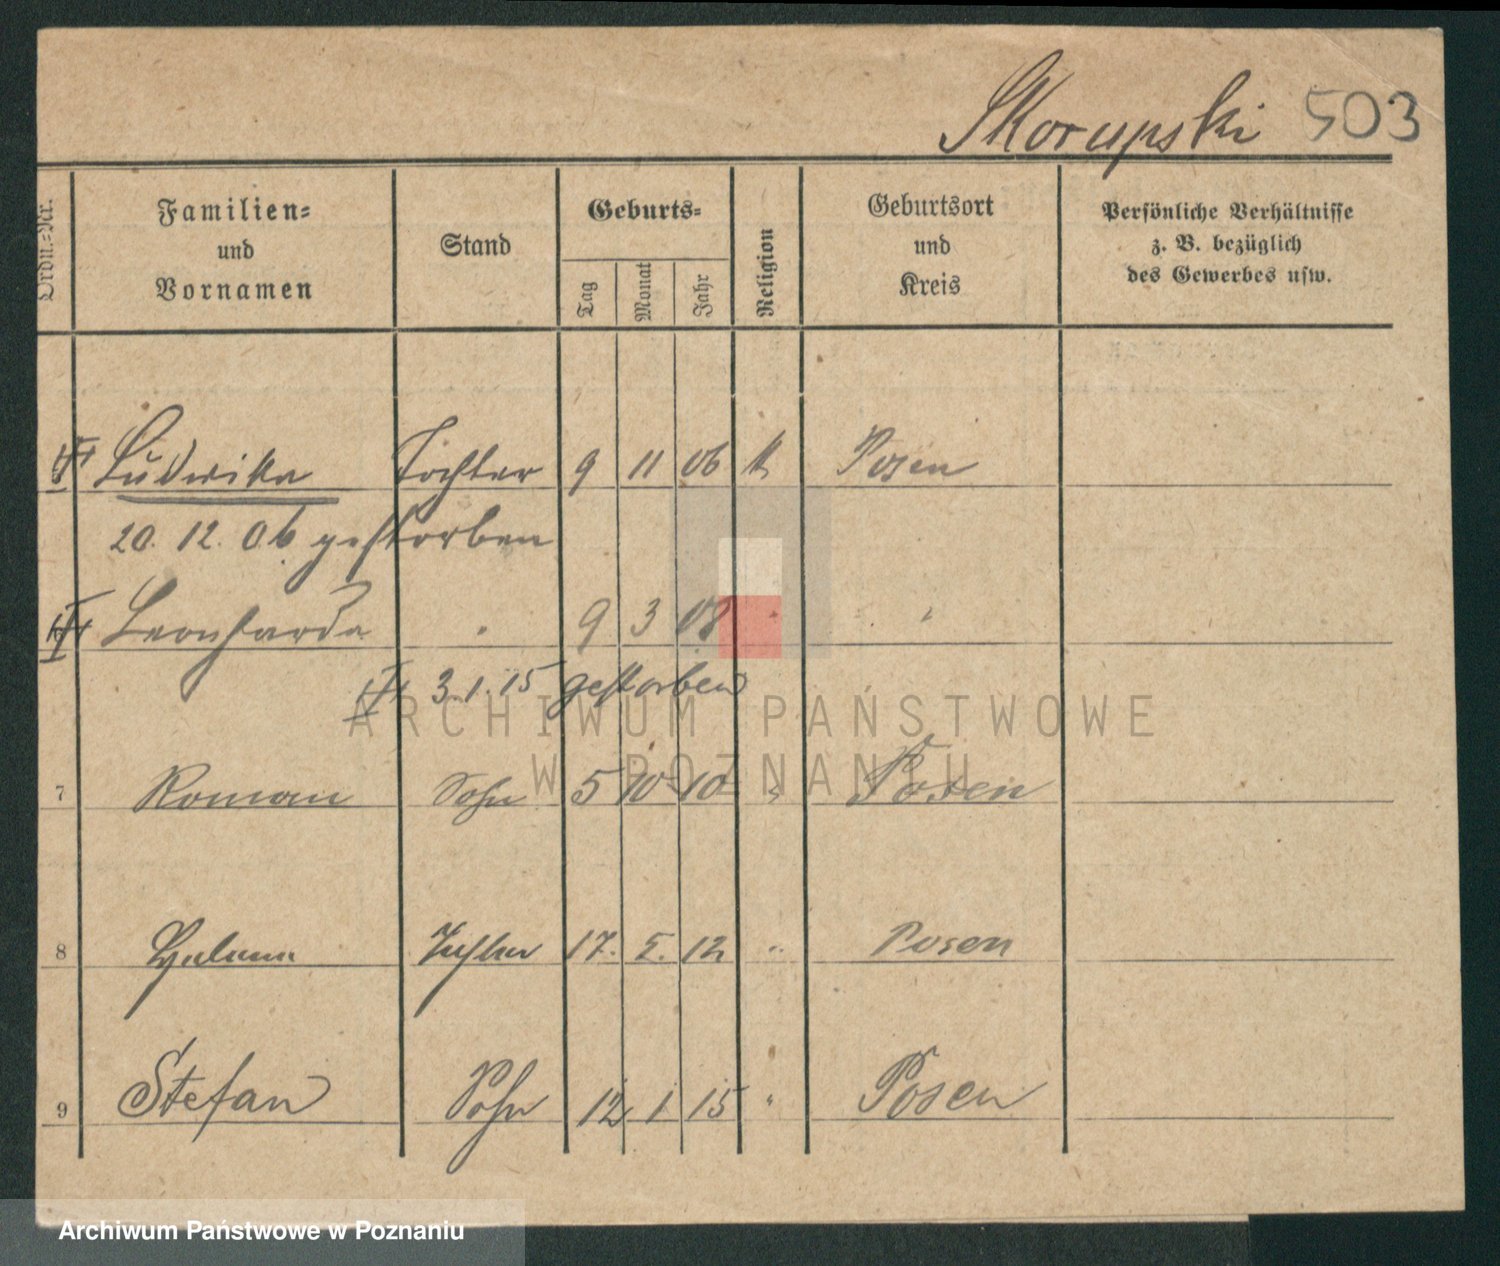 Skorupski 503
Ordn.-Nr.
Familien-
und
Vornamen
Stand
Geburts-
Tag
Monat
Jahr
Religion
Geburtsort
und
Kreis
Persönliche Verhältnisse
z. B. bezüglich
des Gewerbes usw.
Ludwika Tochter 9 11 06 k Posen
20. 12. 06 gestorben
Leonharda " 9 3 08 " "
3. 1. 15 gestorben
ARCHIWUM PAŃSTWOWE
W POZNANIU
7 Roman Sohn 5 10 10 " Posen
8 Tochter 17. 5. 12 " Posen
9 Stefan Sohn 12 1 15 " Posen
Archiwum Państwowe w Poznaniu